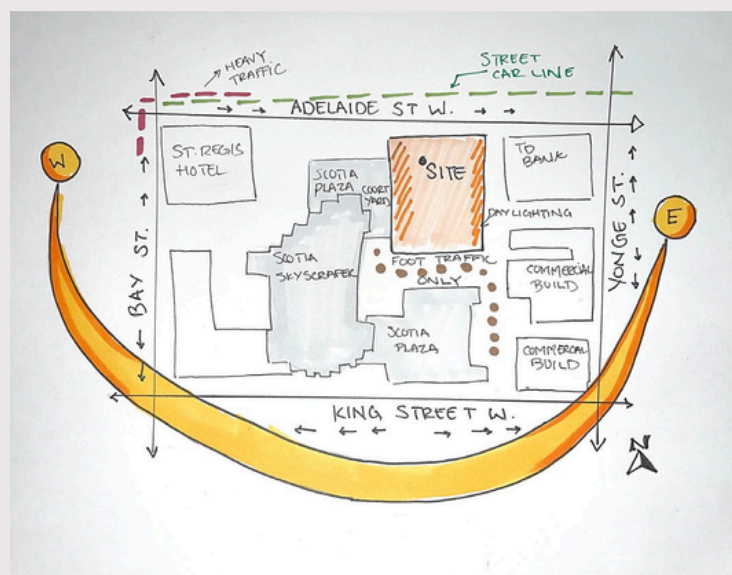 HEAVY
TRAFFIC
STREET
CAR LINE
ADELAIDE ST W.
ST. REGIS
HOTEL
SCOTIA
PLAZA
COURT
YARD
SITE
TD
BANK
DAYLIGHTING
W
E
BAY ST.
YONGE ST.
SCOTIA
SKYSCRAPER
FOOT TRAFFIC
ONLY
COMMERCIAL
BUILD
SCOTIA
PLAZA
COMMERCIAL
BUILD
KING STREET W.
N